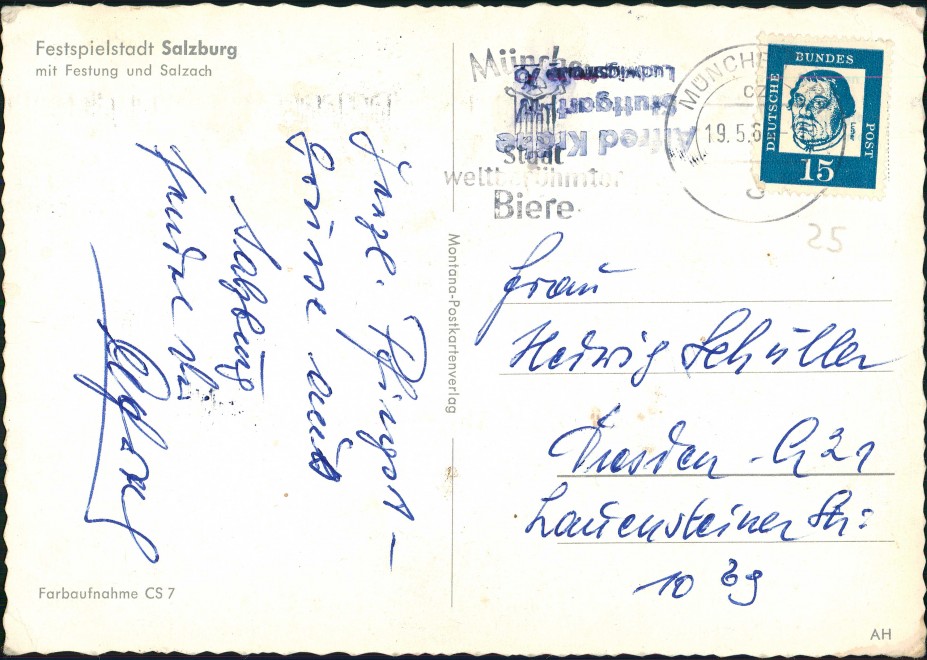 Festspielstadt Salzburg
mit Festung und Salzach
Herzl. Pfingst-
Grüsse aus
Salzburg
sendet Ihr
Alfred
Farbaufnahme CS 7
Montana-Postkartenverlag
München
Stadt
weltberühmter
Biere
Alfred
Stuttgart
Ludwigstraße
MÜNCHE
CZ
19.5.6
DEUTSCHE
BUNDES
POST
Luther
15
25
Frau
Hedwig Schuller
Dresden - A 21
Lauensteiner Str:
10 Eg
AH